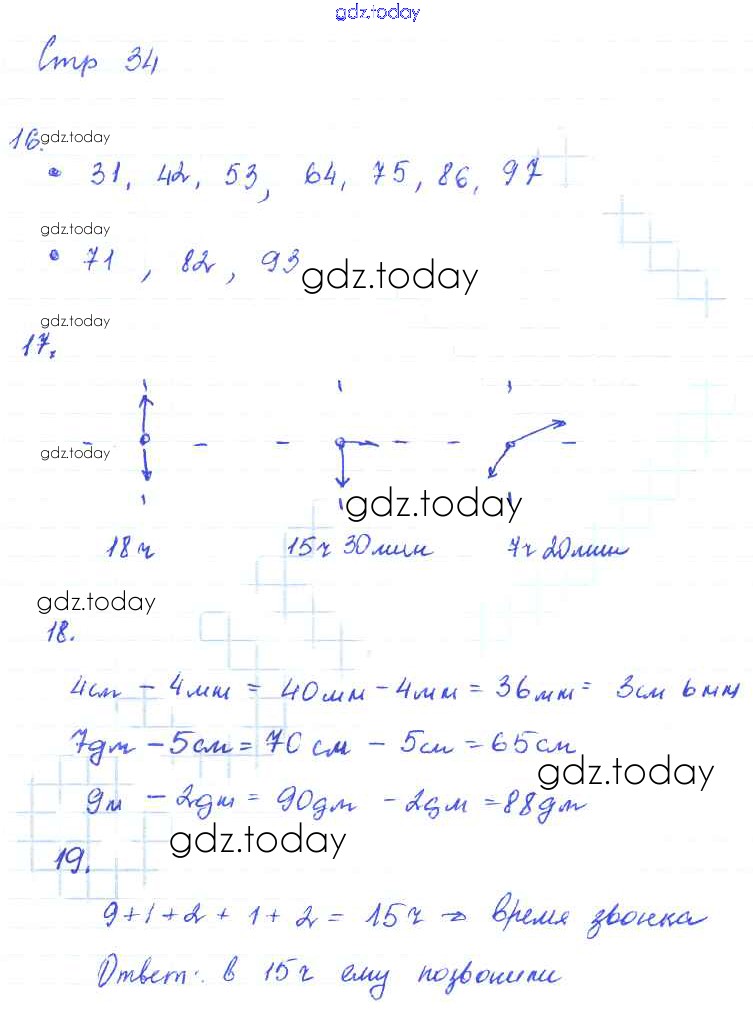 gdz.today
Стр 34
16. gdz.today
• 31, 42, 53, 64, 75, 86, 97
gdz.today
• 71, 82, 93 gdz.today
gdz.today
17.
gdz.today
gdz.today
18 ч 15 ч 30 мин 7 ч 20 мин
gdz.today
18.
4 см - 4 мм = 40 мм - 4 мм = 36 мм = 3 см 6 мм
7 дм - 5 см = 70 см - 5 см = 65 см
gdz.today
9 м - 2 дм = 90 дм - 2 дм = 88 дм
gdz.today
19.
9 + 1 + 2 + 1 + 2 = 15 ч → время звонка
Ответ: в 15 ч ему позвонили